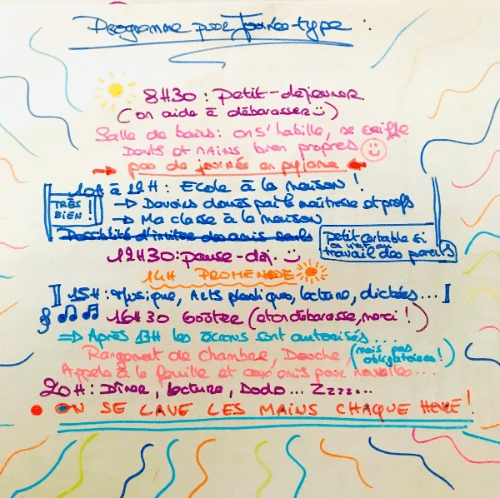 Programme pour Journée-type :
8H30 : Petit-déjeuner
(on aide à débarasser ☺)
Salle de bains : on s'habille, se coiffe
Dents et mains bien propres
→ pas de journée en pyjama ←
10H à 12H : Ecole à la maison !
TRÈS BIEN !
→ Devoirs donnés par la maîtresse et profs
→ Ma classe à la maison
Possibilité d'inviter des amis seuls
Petit cartable si
travail des parents
12H30 : pause-dej.
14H PROMENADE
15H : Musique, Arts plastiques, lecture, dictées...
16H30 Goûter (et on débarasse, merci !)
⇒ Après 17H les écrans sont autorisés.
(mais pas obligatoires !)
Rangement de chambre, Douche,
Appels à la famille et aux amis pour nouvelles...
20H : Dîner, lecture, Dodo... Zzzz...
ON SE LAVE LES MAINS CHAQUE HEURE !